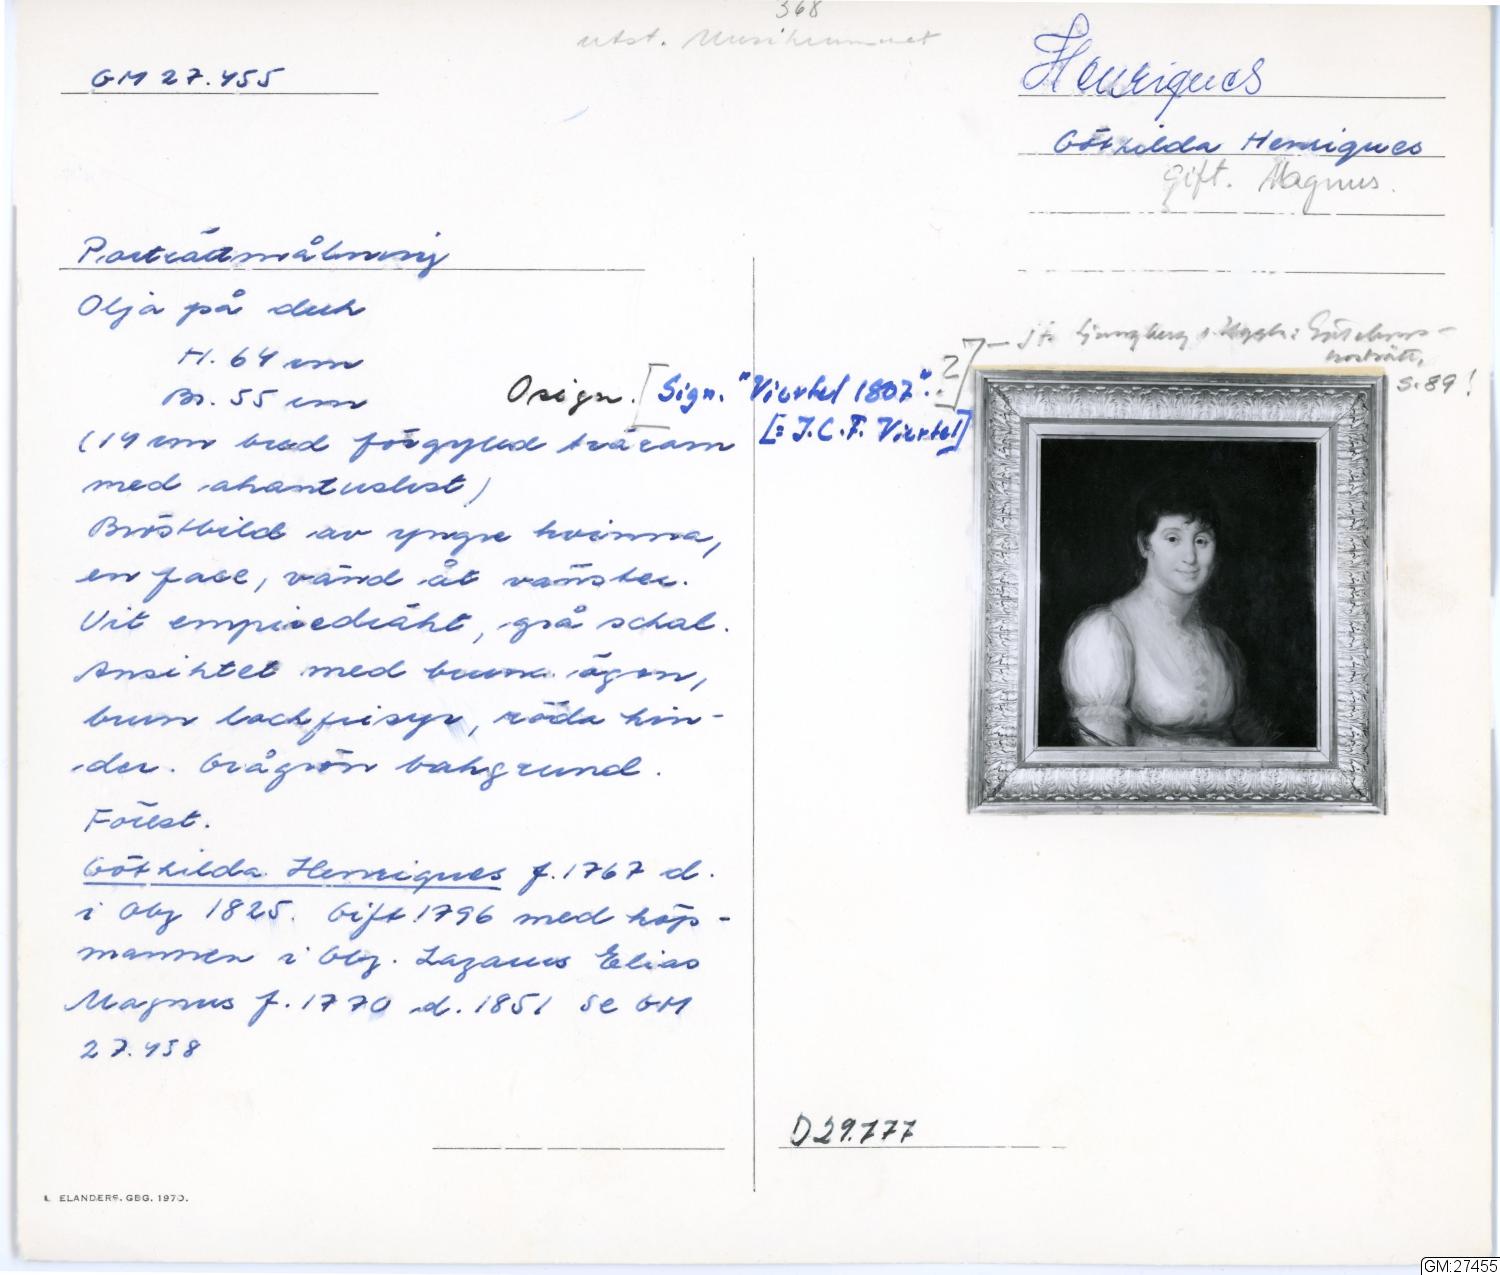 368
utst. Musikrummet
GM 27.455
Henriques
Göthilda Henriques
gift. Magnus.
Porträttmålning
Olja på duk
H. 64 cm
Br. 55 cm
Osign. [Sign. "Viertel 1807". ?]
[= J.C.F. Viertel]
(14 cm bred förgylld träram
med akantuslist)
Bröstbild av yngre kvinna,
en face, vänd åt vänster.
Vit empiredräkt, grå schal.
Ansiktet med bruna ögon,
brun lockfrisyr, röda kin-
der. Grågrön bakgrund.
Förest.
Göthilda Henriques f. 1767 d.
i Gbg 1825. Gift 1796 med köp-
mannen i Gbg. Lazarus Elias
Magnus f. 1770 d. 1851 Se GM
27.458
jfr Ljungberg o. : Göteborgs-
porträtt,
s. 89!
D29.777
L ELANDERS. GBG. 1970.
GM:27455